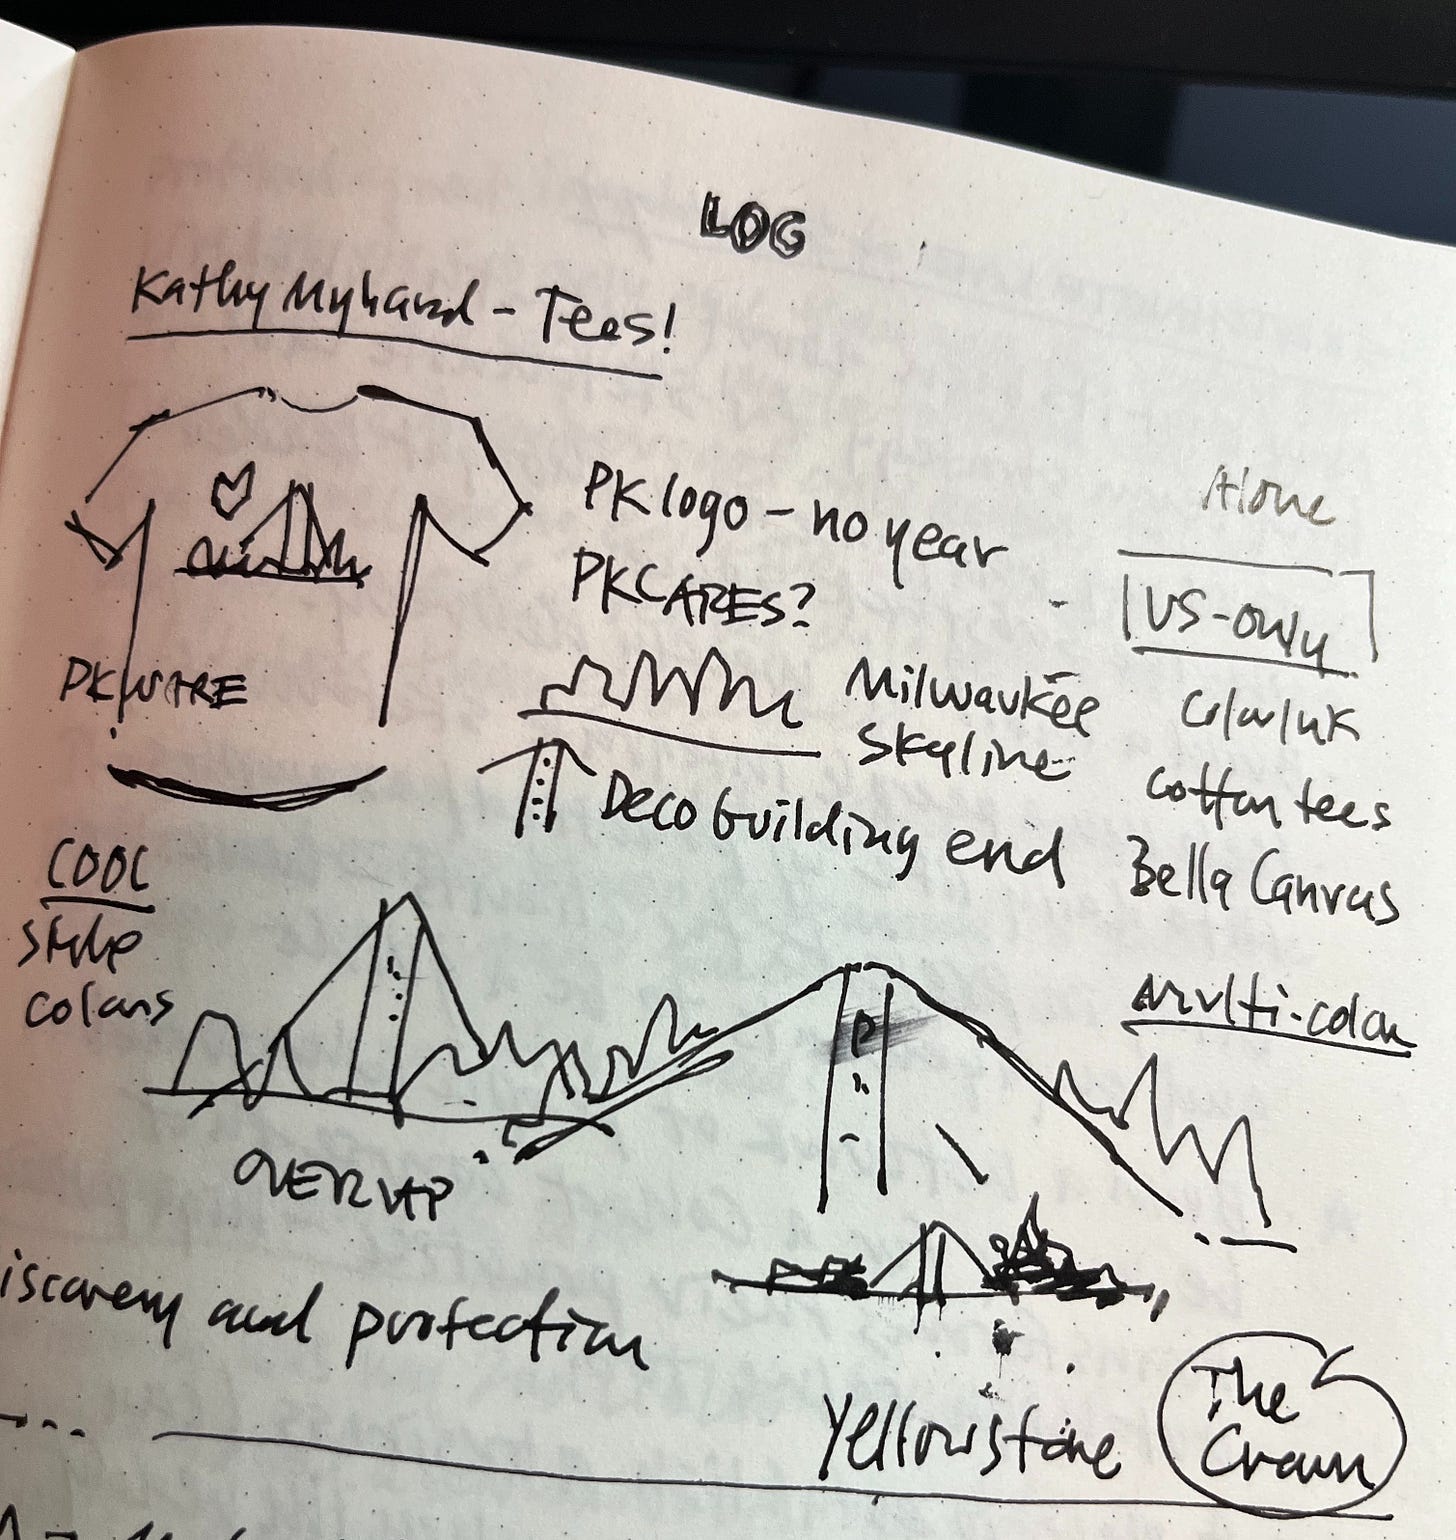 LOG
Kathy Myhard - Tees!
PK logo - no year
PKCARES?
Alone
US-only
PKWARE
Milwaukee
Skyline
Deco building end
cotton tees
Bella Canvas
COOL
style
colors
multi-color
OVERLAP
iscovery and protection
Yellowstone
The
Crown